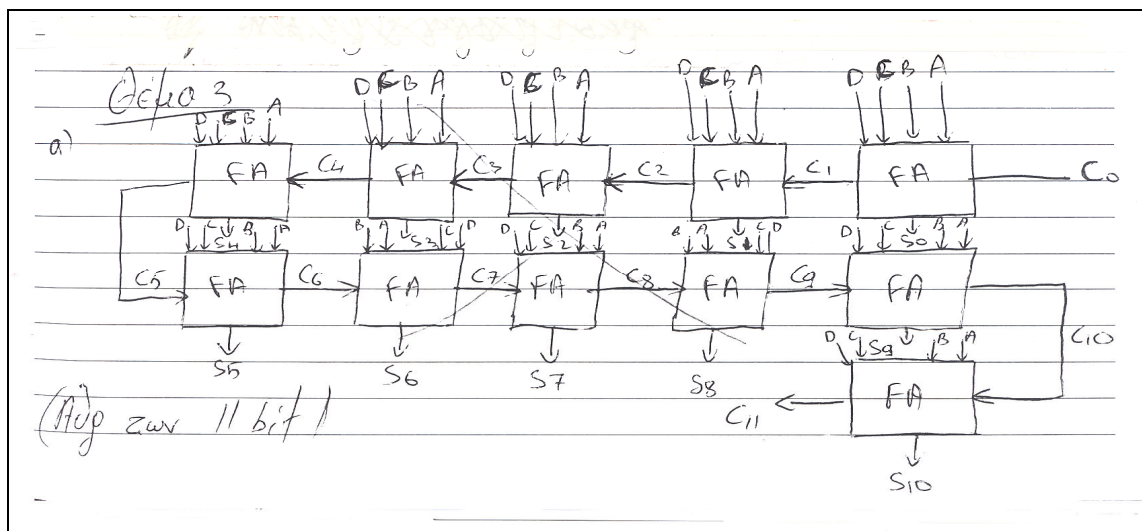 Θέμα 3
α)
D C B A
D C B A
D C B A
D C B A
D C B A
FA C4 FA C3 FA C2 FA C1 FA C0
D C S4 B A
B A S3 C D
D C S2 B A
B A S1 C D
D C S0 B A
C5 FA C6 FA C7 FA C8 FA C9 FA C10
S5 S6 S7 S8
D C S9 B A
FA
C11
S10
(Αθρ των 11 bit)